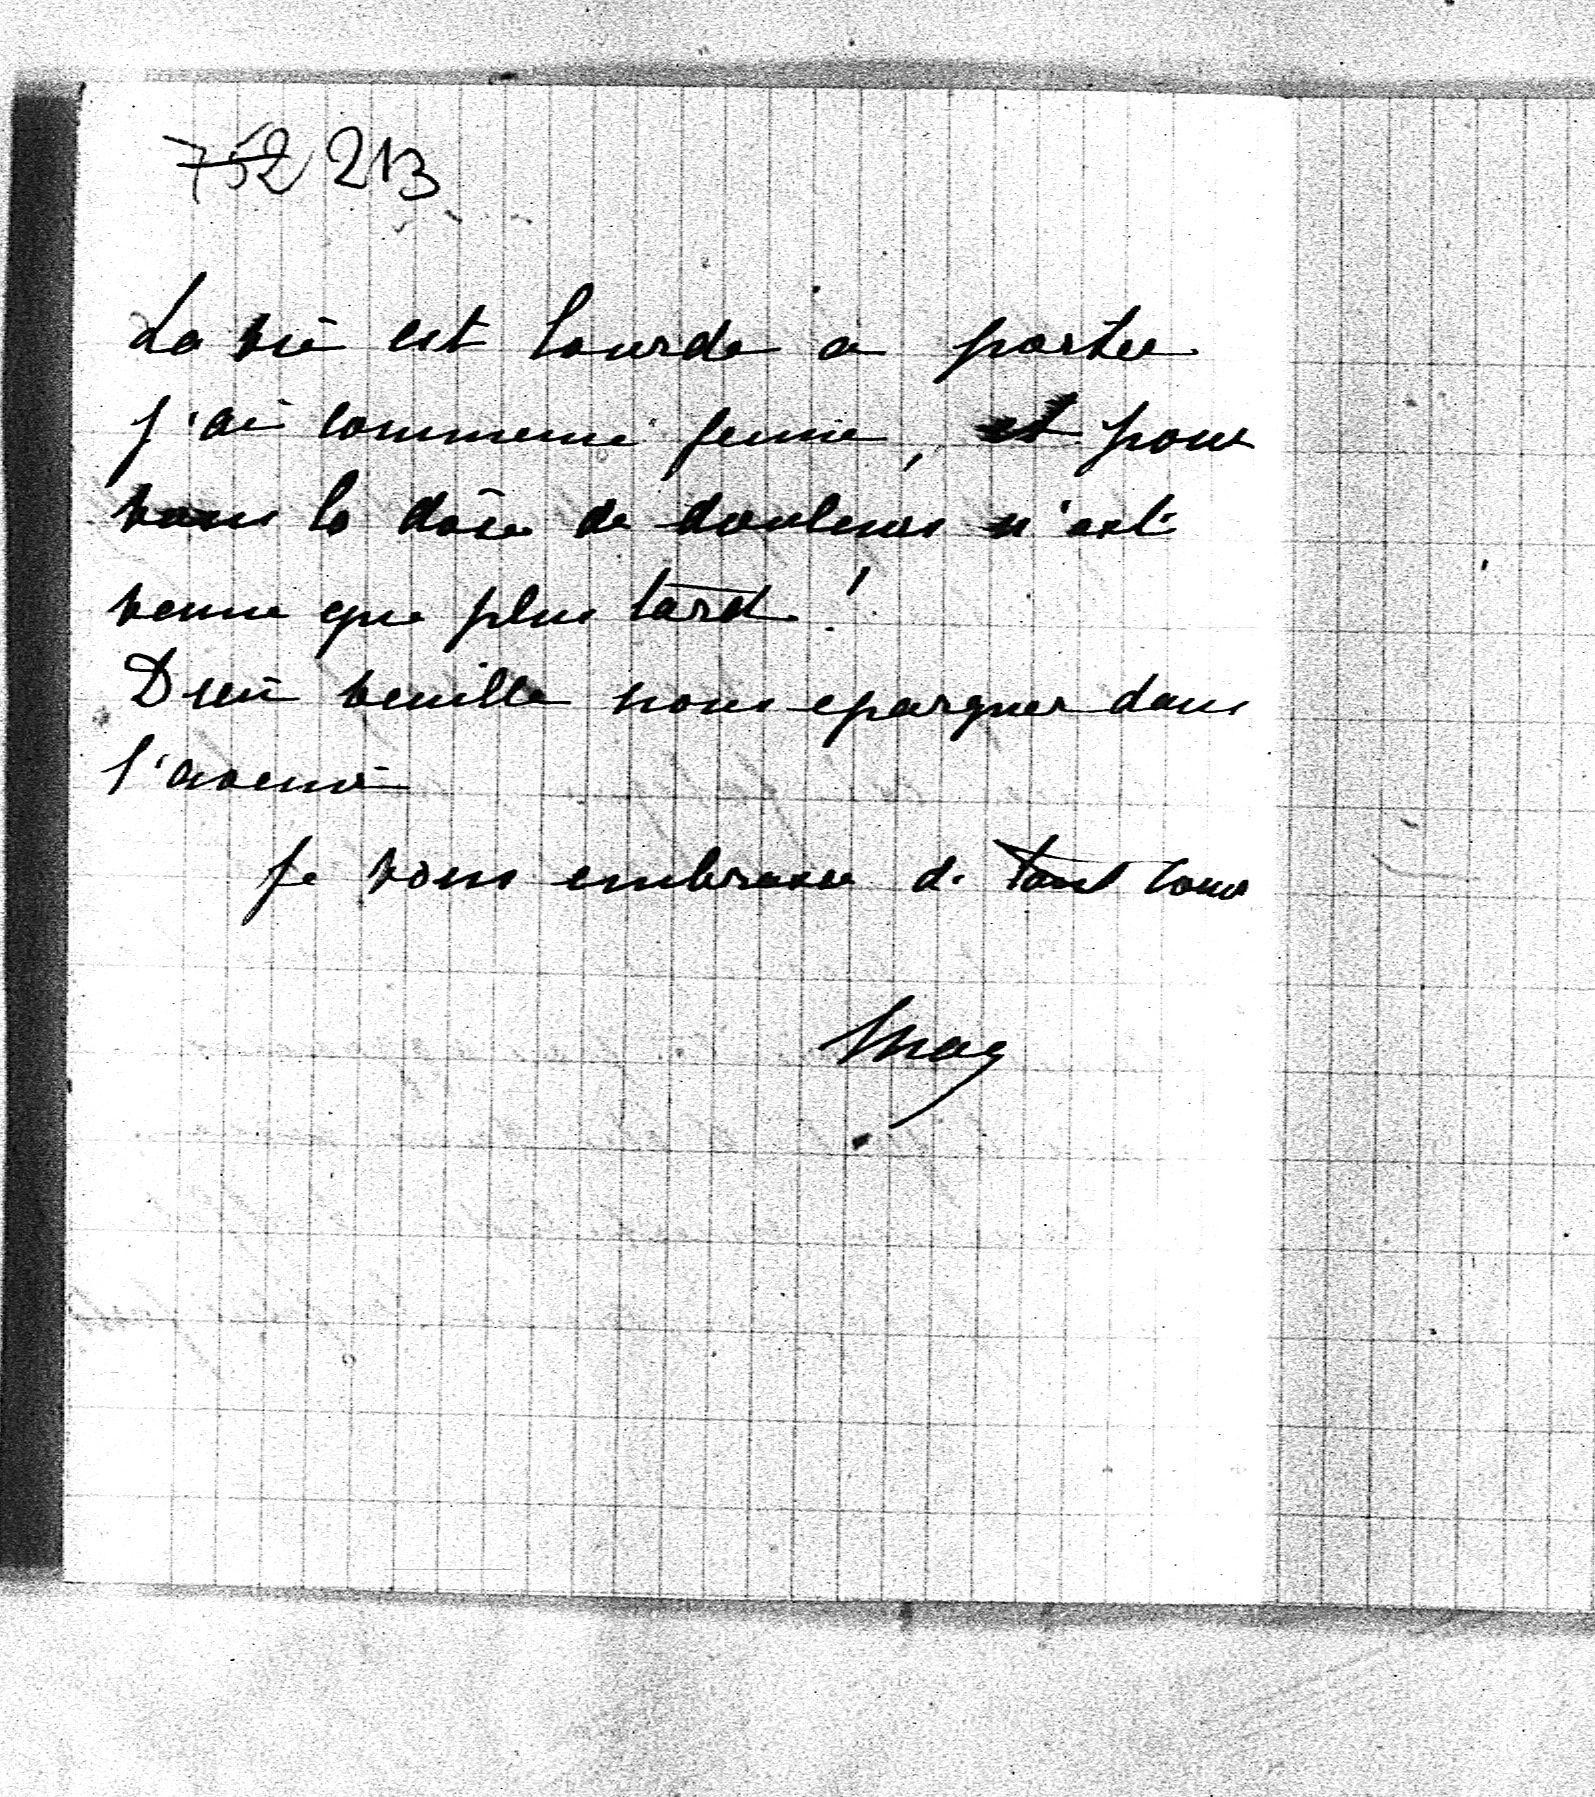 752 213
La vie est lourde à porter
j'ai commencé jeune, et pour
vous la dose de douleurs n'est
venue que plus tard !
Dieu veuille nous epargner dans
l'avenir
Je vous embrasse de tout cœur
Mag